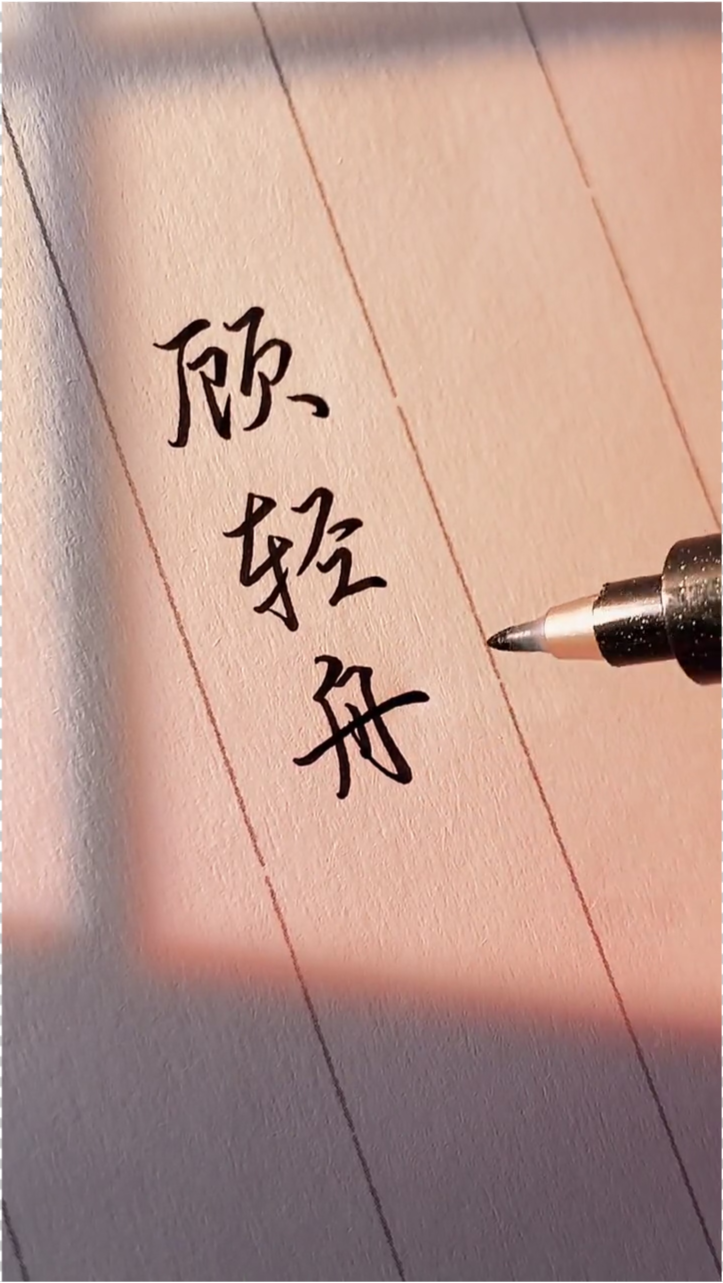 顾轻舟